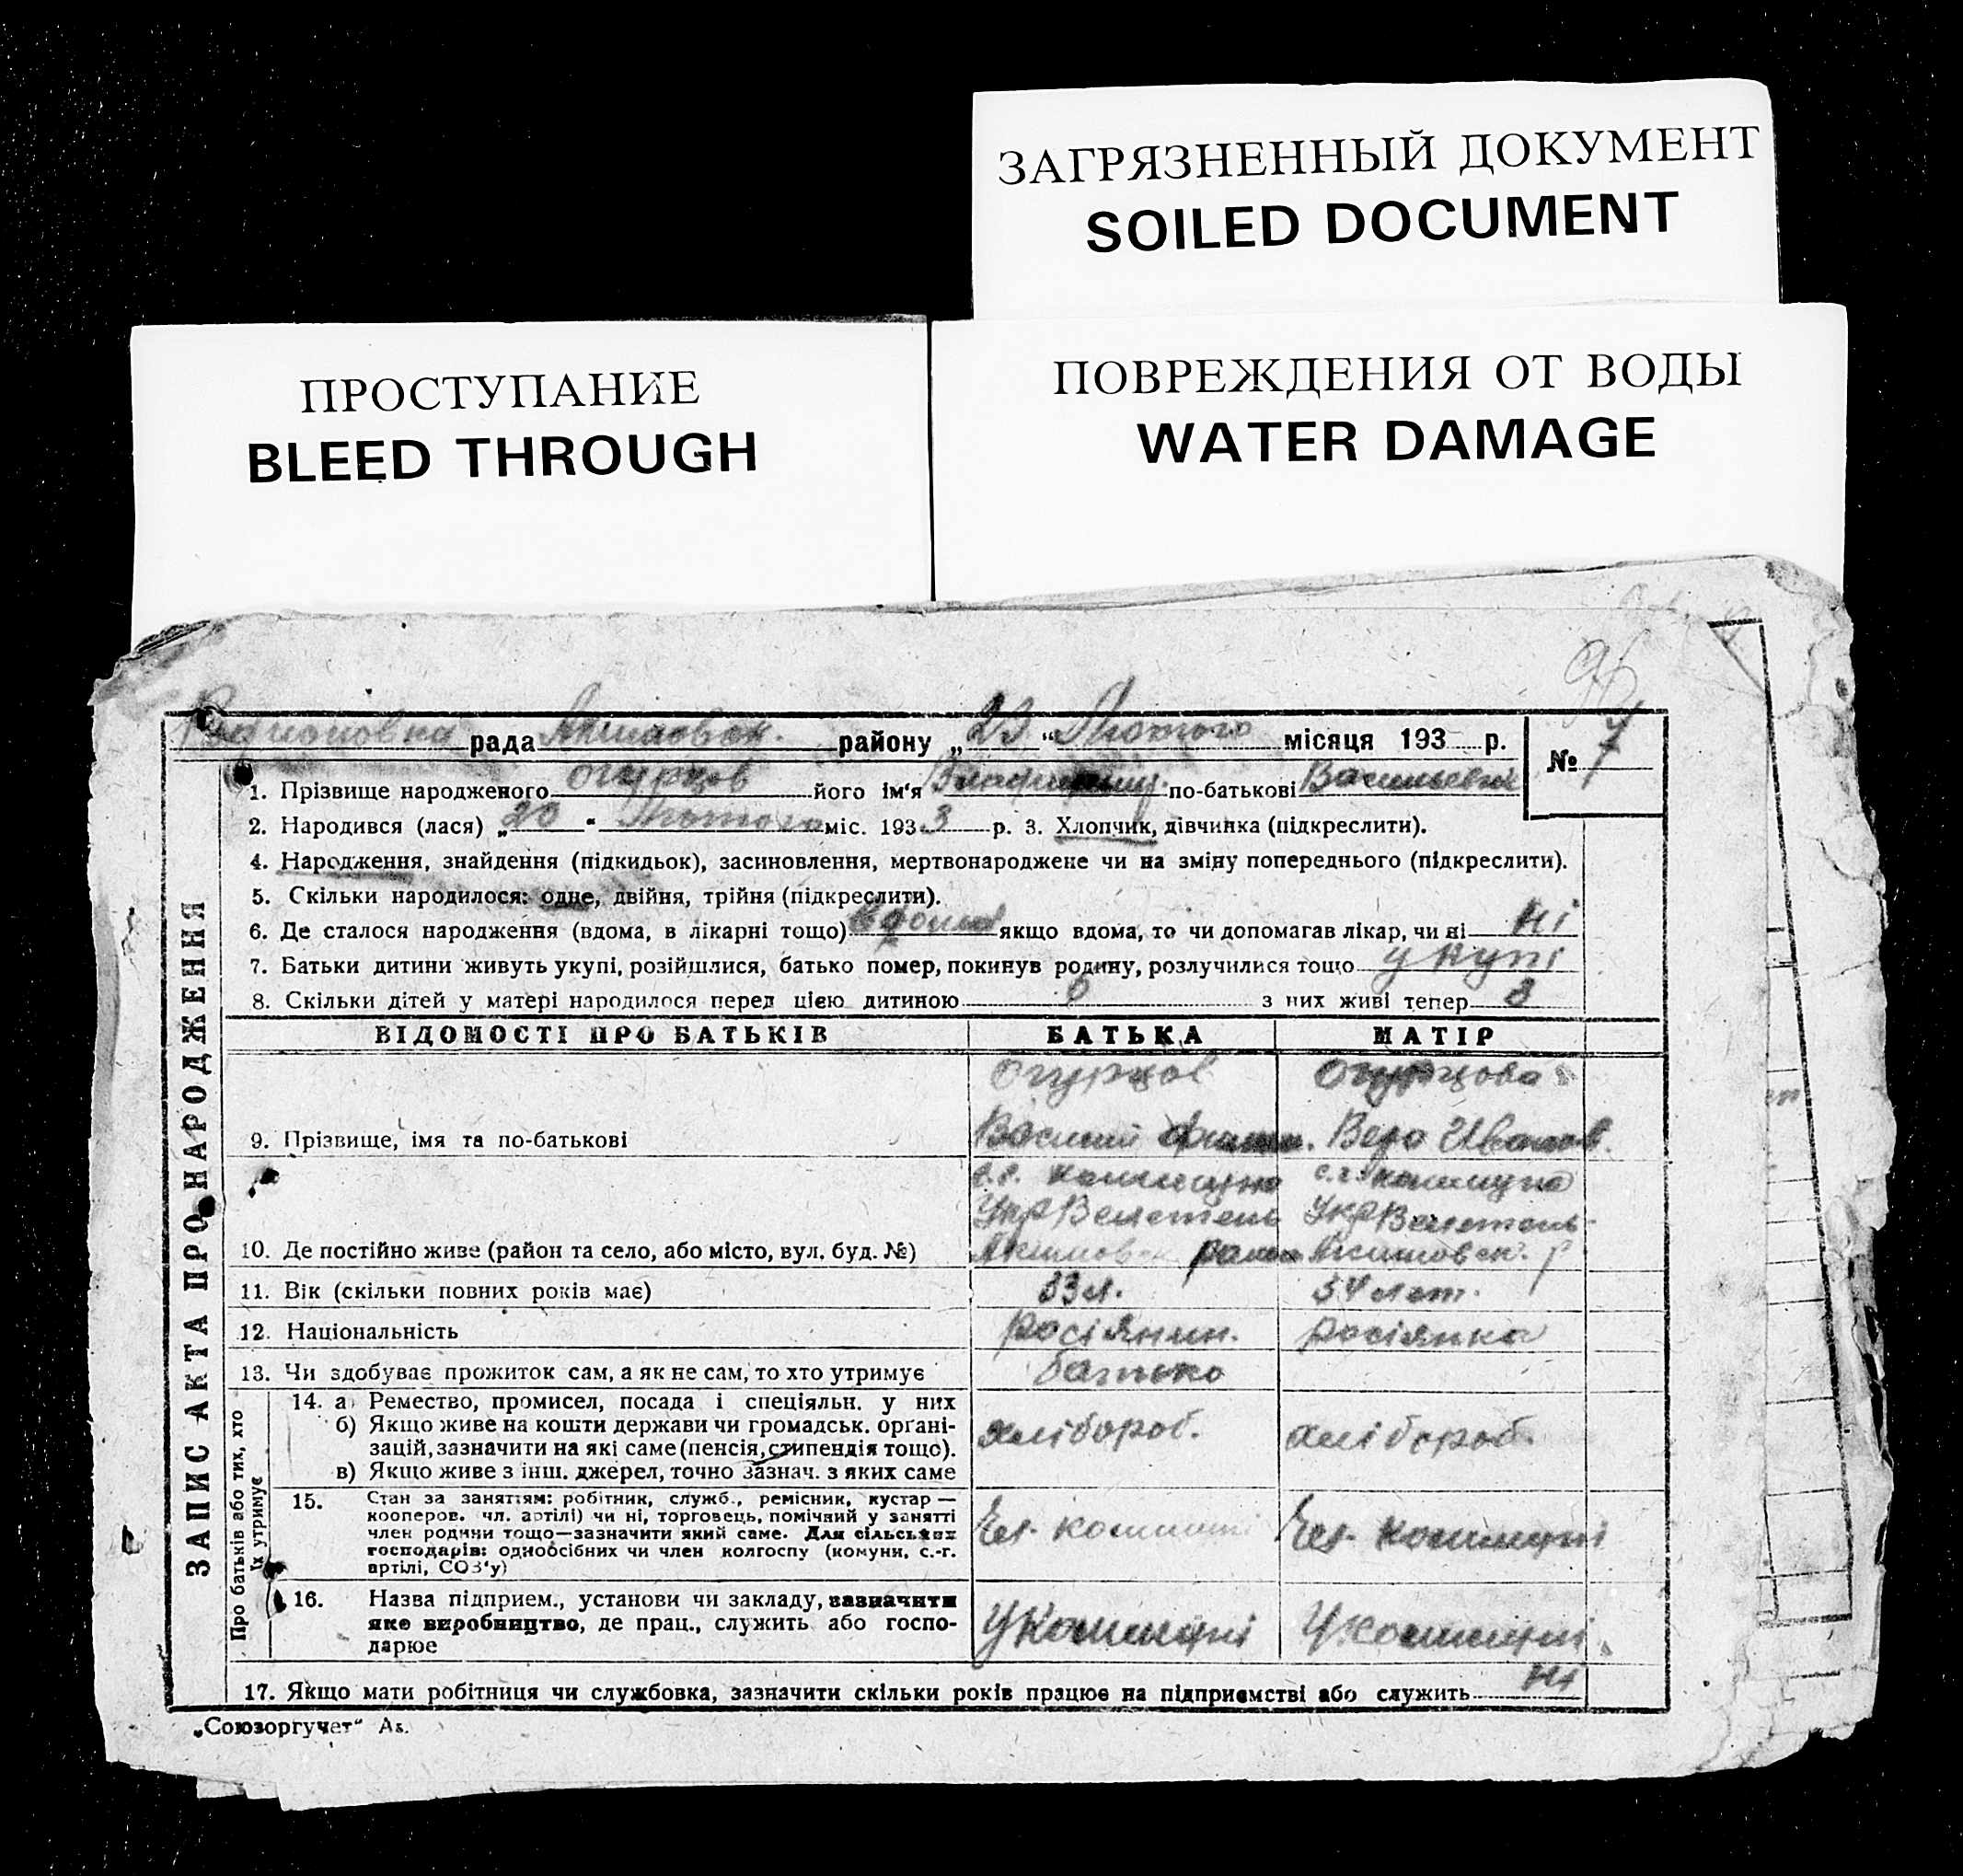 ЗАГРЯЗНЕННЫЙ ДОКУМЕНТ
SOILED DOCUMENT
ПРОСТУПАНИЕ
BLEED THROUGH
ПОВРЕЖДЕНИЯ ОТ ВОДЫ
WATER DAMAGE
рада района „23“ Лютого місяця 193 р.
№ 7
1. Прізвище народженого Огурцов його ім'я по-батькові
2. Народився (лася) „20“ Лютого міс. 1933 р. 3. Хлопчик, дівчинка (підкреслити).
4. Народження, знайдення (підкидьок), засиновлення, мертвонароджене чи на зміну попереднього (підкреслити).
5. Скільки народилося: одне, двійня, трійня (підкреслити).
6. Де сталося народження (вдома, в лікарні тощо) вдома якщо вдома, то чи допомагав лікар, чи ні Ні
7. Батьки дитини живуть укупі, розійшлися, батько помер, покинув родину, розлучилися тощо укупі
8. Скільки дітей у матері народилося перед цією дитиною 6 з них живі тепер 3
ВІДОМОСТІ ПРО БАТЬКІВ БАТЬКА МАТІР
Огурцов Огурцова
9. Прізвище, імя та по-батькові Василий Вера Иванов.
с.г. комуна с.г. комуна
10. Де постійно живе (район та село, або місто, вул. буд. №)
11. Вік (скільки повних років має) 33 л. 34 лет.
12. Національність росіянин. росіянка
13. Чи здобуває прожиток сам, а як не сам, то хто утримує батько
14. а) Ремество, промисел, посада і спеціяльн. у них
б) Якщо живе на кошти держави чи громадськ. органі-
зацій, зазначити на які саме (пенсія, стипендія тощо). хлібороб. хлібороб.
в) Якщо живе з інш. джерел, точно зазнач. з яких саме
15. Стан за заняттям: робітник, служб., ремісник, кустар —
кооперов. чл. артілі) чи ні, торговець, помічний у занятті
член родини тощо—зазначити який саме. Для сільських
господарів: одноосібних чи член колгоспу (комуни, с.-г.
артілі, СОЗ'у)
Чл. комуни Чл. комуни
16. Назва підприєм., установи чи закладу, зазначити
яке виробництво, де прац., служить або госпо-
дарює
У комуні У комуні
17. Якщо мати робітниця чи службовка, зазначити скільки років працює на підприємстві або служить Ні
ЗАПИС АКТА ПРО НАРОДЖЕННЯ
Про батьків або тих, хто
їх утримує
„Союзоргучет“